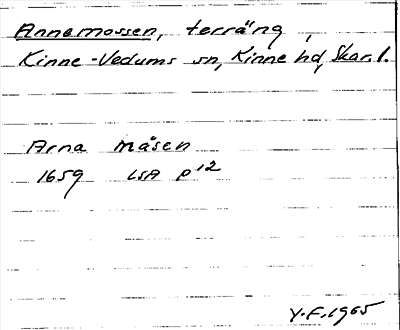 Annemossen, terräng,
Kinne-Vedums sn, Kinne hd, Skar. l.
Arna Måsen
1659 LSA p 12
Y.F. 1965